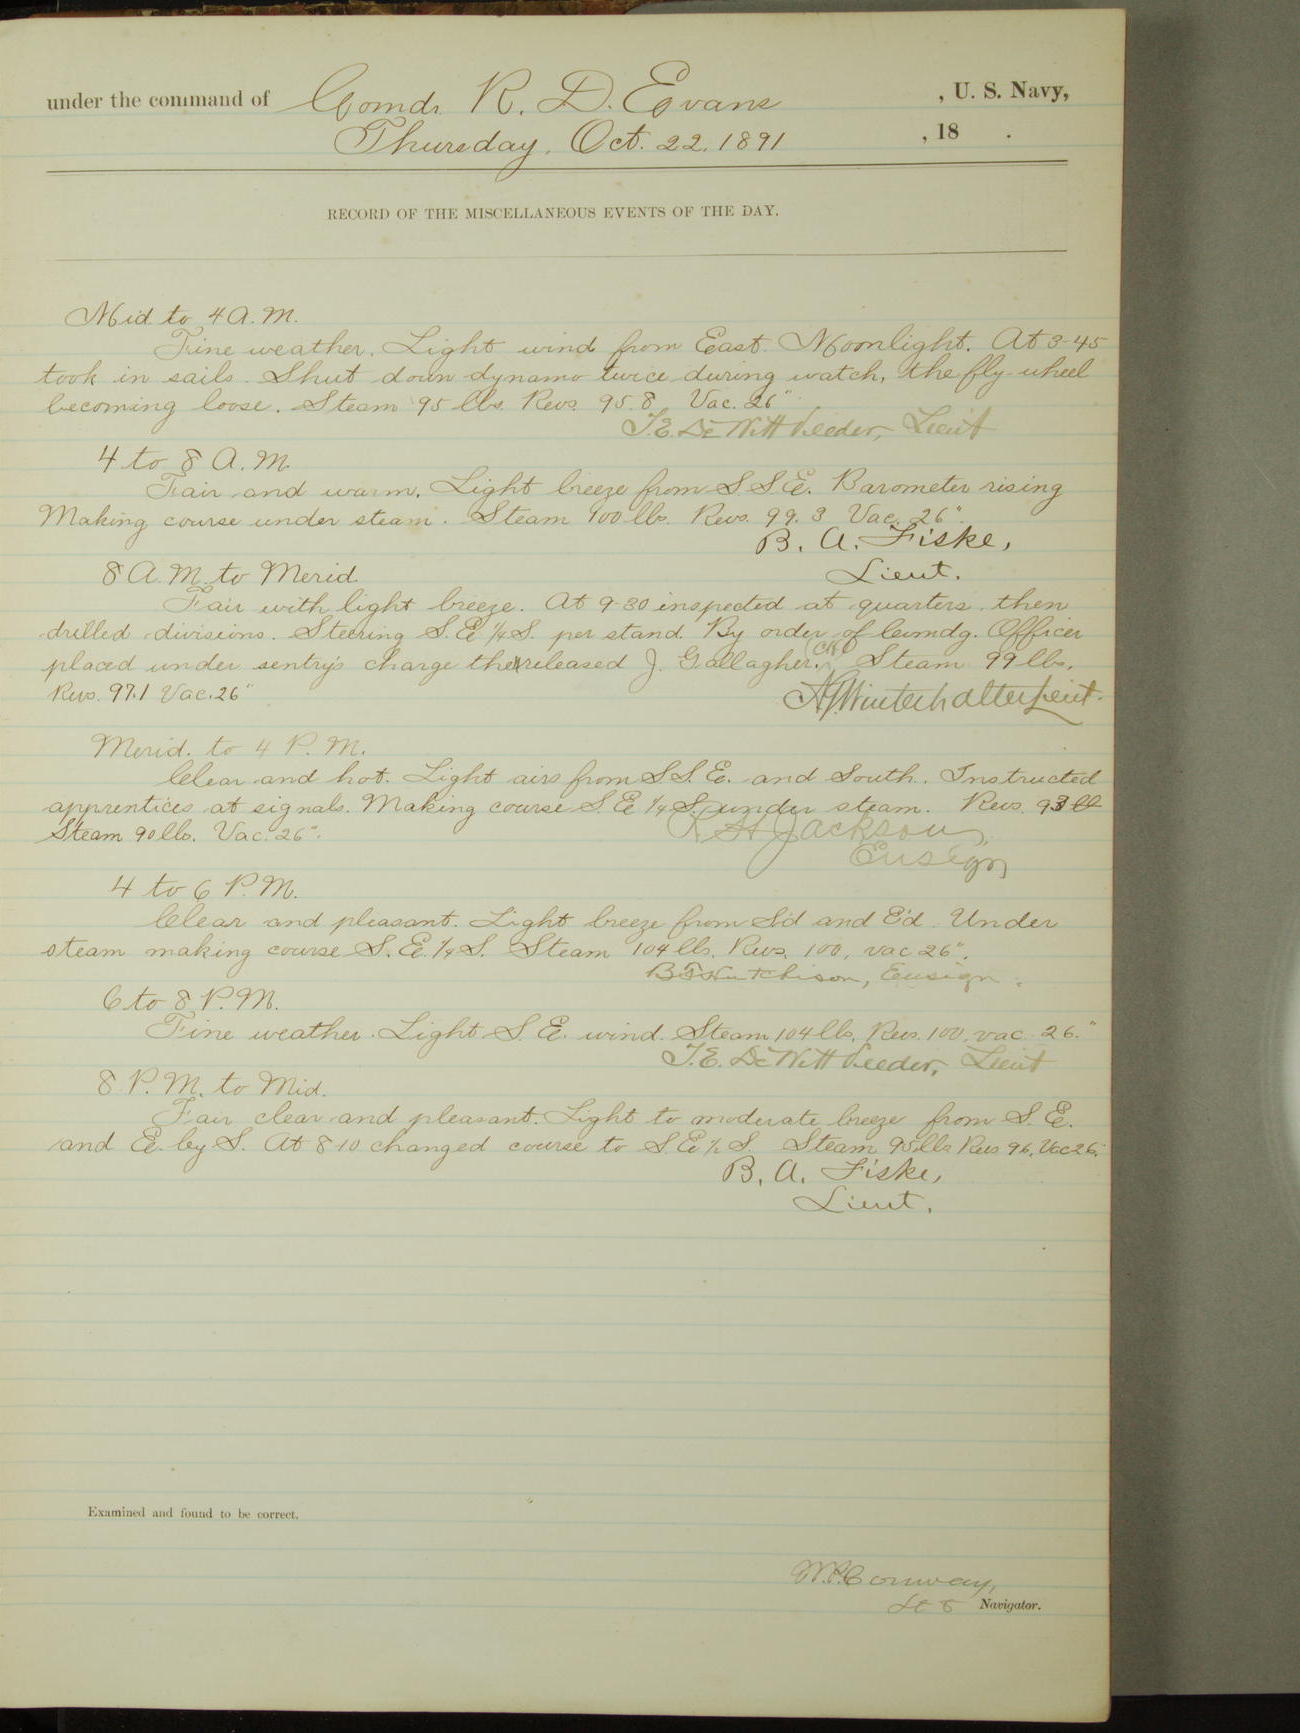 under the command of Comdr. R. D. Evans , U. S. Navy,
Thursday, Oct. 22. 1891 , 18 .
RECORD OF THE MISCELLANEOUS EVENTS OF THE DAY.
Mid to 4 A.M.
Fine weather. Light wind from East. Moonlight. At 3-45
took in sails. Shut down dynamo twice during watch, the fly-wheel
becoming loose. Steam 95 lbs. Revs. 95.8 Vac. 26"
T.E. De Witt Veeder, Lieut
4 to 8 A.M.
Fair and warm. Light breeze from S S E. Barometer rising
Making course under steam. Steam 100 lbs. Revs. 99.3 Vac. 26".
B. A. Fiske,
Lieut.
8 A.M. to Merid.
Fair with light breeze. At 9-30 inspected at quarters, then
drilled divisions. Steering S.E 1/4 S. per stand. By order of Comdg. Officer
placed under sentry's charge the released J. Gallagher. Steam 99 lbs.
Revs. 97.1 Vac. 26"
Winterhalter Lieut.
Merid. to 4 P.M.
Clear and hot. Light airs from S S. E. and South. Instructed
apprentices at signals. Making course S. E 1/4 S. under steam. Revs. 93
Steam 90 lbs. Vac. 26".
R H Jackson,
Ensign
4 to 6 P.M.
Clear and pleasant. Light breeze from S'd and E'd. Under
steam making course S. E. 1/4 S. Steam 104 lbs. Revs. 100, vac 26".
Hutchison, Ensign.
6 to 8 P.M.
Fine weather. Light S. E. wind. Steam 104 lbs, Revs. 100, vac. 26."
T.E. De Witt Veeder, Lieut
8 P.M. to Mid.
Fair clear and pleasant. Light to moderate breeze from S. E.
and E. by S. At 8-10 changed course to S E 1/2 S. Steam 95 lbs Revs 96, Vac 26"
B. A. Fiske,
Lieut.
Examined and found to be correct.
W.P. Conway,
Lt & Navigator.